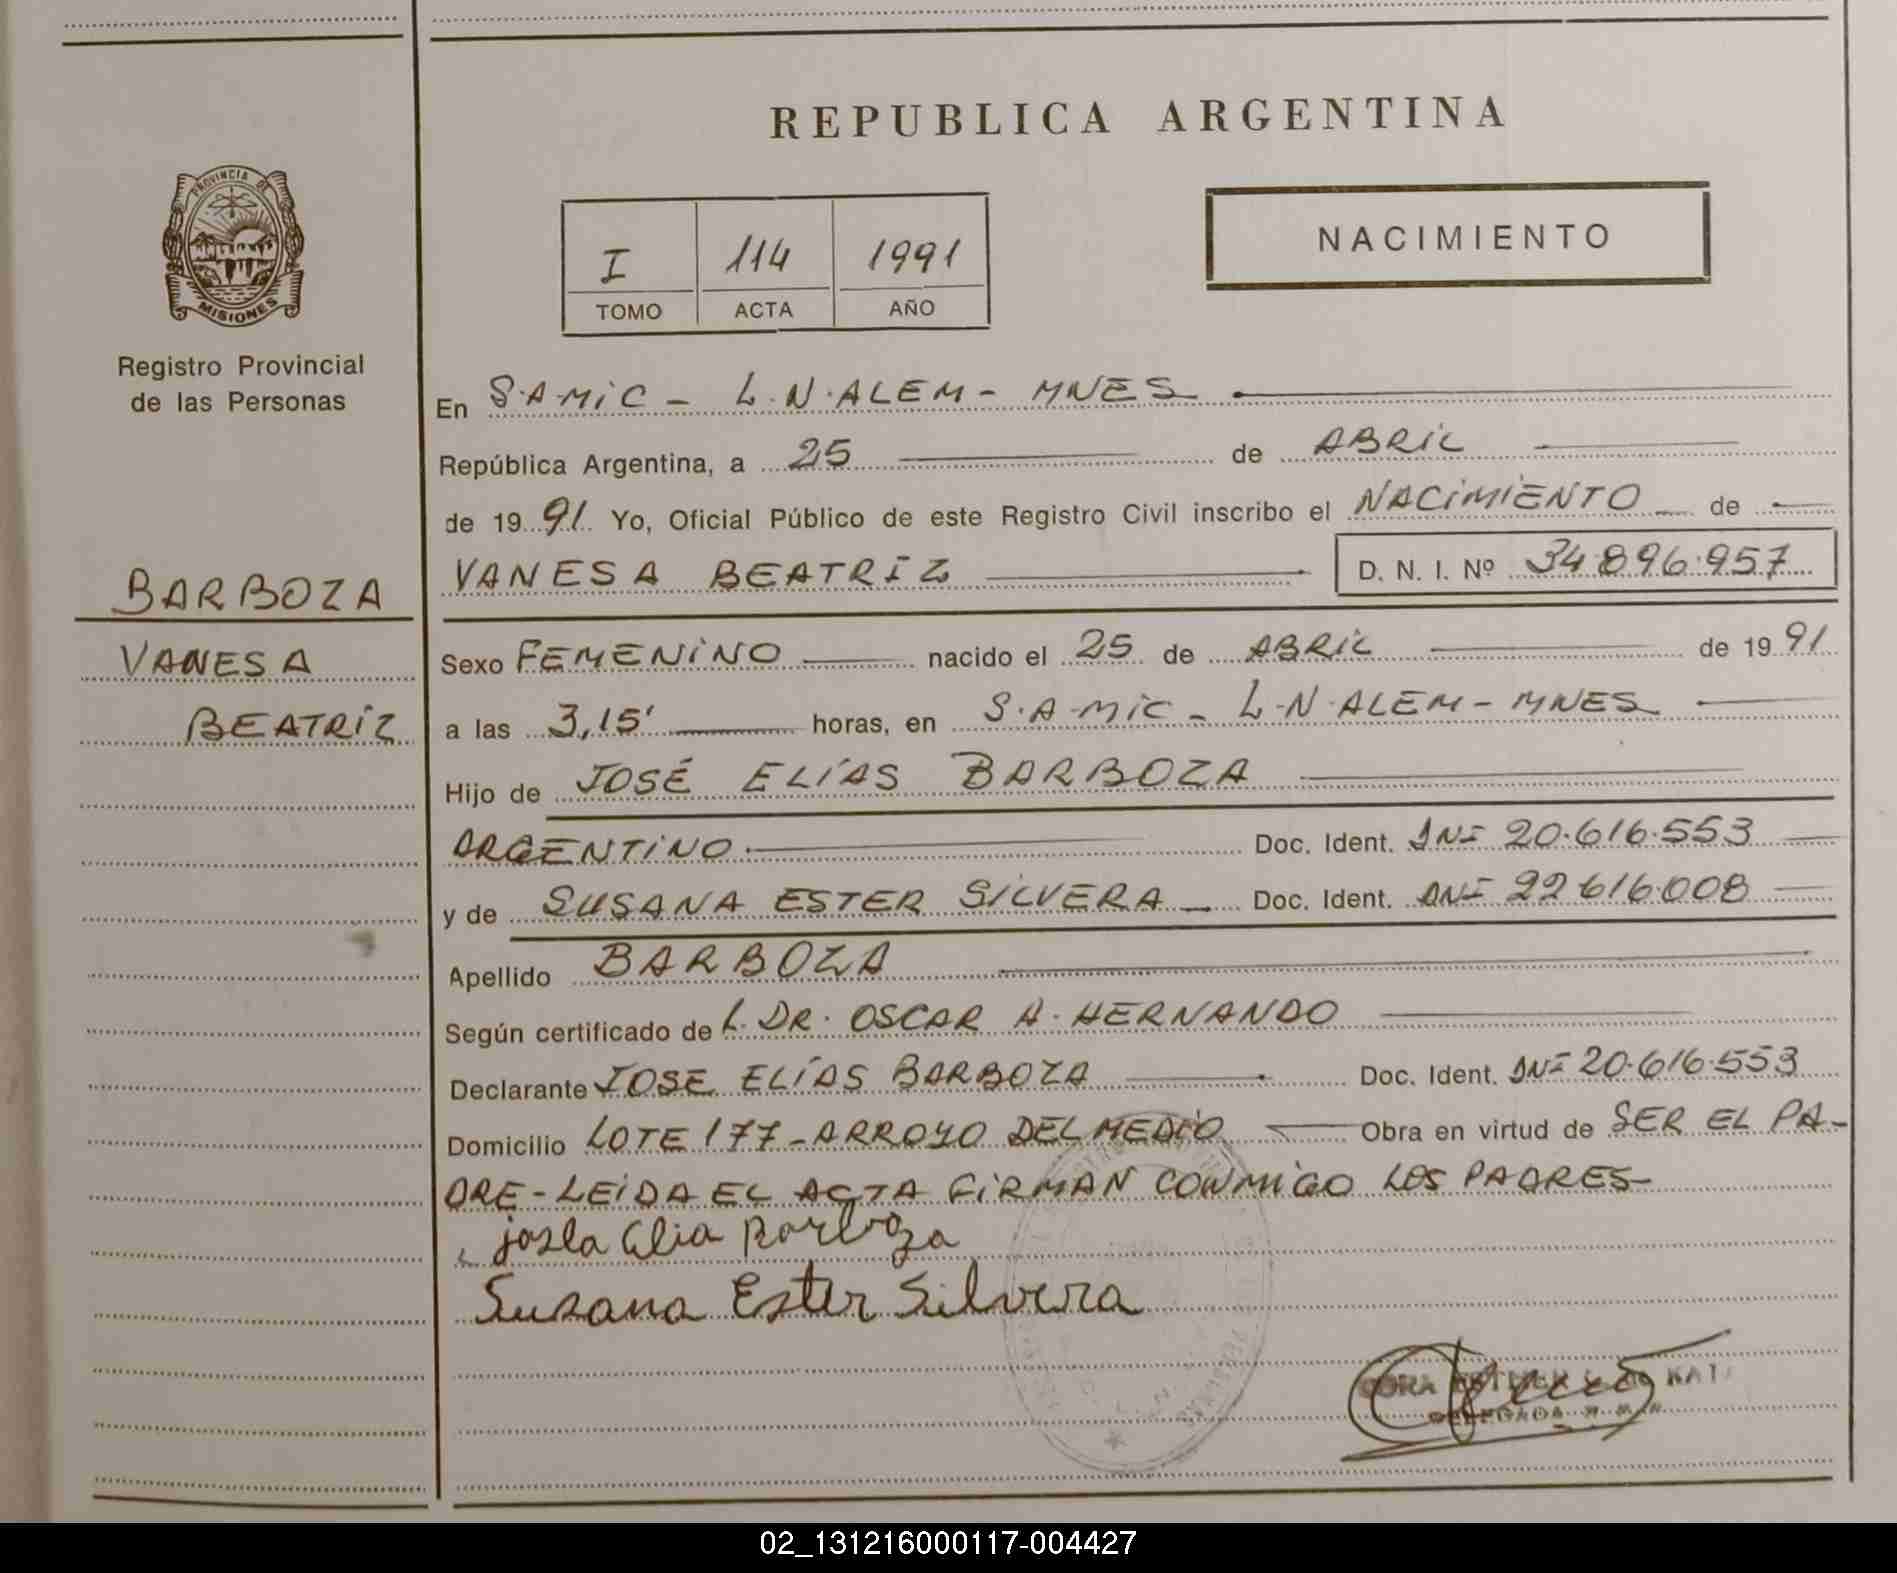 REPUBLICA ARGENTINA
PROVINCIA DE
MISIONES
Registro Provincial
de las Personas
I 114 1991
TOMO ACTA AÑO
NACIMIENTO
En S.A.MIC - L.N.ALEM - MNES
República Argentina, a 25 de ABRIL
de 1991 Yo, Oficial Público de este Registro Civil inscribo el NACIMIENTO de
BARBOZA
VANESA BEATRIZ D. N. I. Nº 34.896.957
VANESA
BEATRIZ
Sexo FEMENINO nacido el 25 de ABRIL de 1991
a las 3,15' horas, en S.A.MIC - L.N.ALEM - MNES
Hijo de JOSÉ ELÍAS BARBOZA
ARGENTINO Doc. Ident. DNI 20.616.553
y de SUSANA ESTER SILVERA Doc. Ident. DNI 22.616.008
Apellido BARBOZA
Según certificado de L. DR. OSCAR A. HERNANDO
Declarante JOSE ELÍAS BARBOZA Doc. Ident. DNI 20.616.553
Domicilio LOTE 177 - ARROYO DEL MEDIO Obra en virtud de SER EL PA-
DRE - LEIDA EL ACTA FIRMAN CONMIGO LOS PADRES
Barboza
Susana Ester Silvera
DELEGADA
02_131216000117-004427